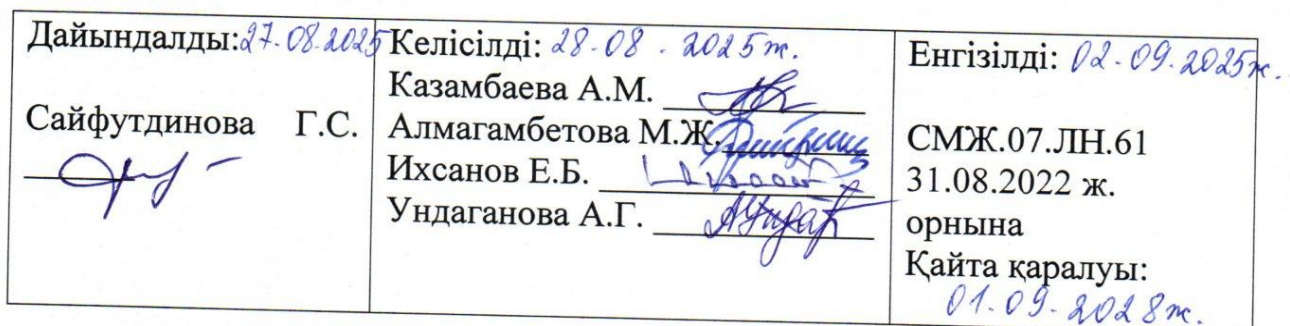 Дайындалды: 27.08.2025
Сайфутдинова Г.С.
Келісілді: 28.08.2025ж.
Казамбаева А.М.
Алмагамбетова М.Ж.
Ихсанов Е.Б.
Ундаганова А.Г.
Енгізілді: 02.09.2025ж.
СМЖ.07.ЛН.61
31.08.2022 ж.
орнына
Қайта қаралуы:
01.09.2028ж.